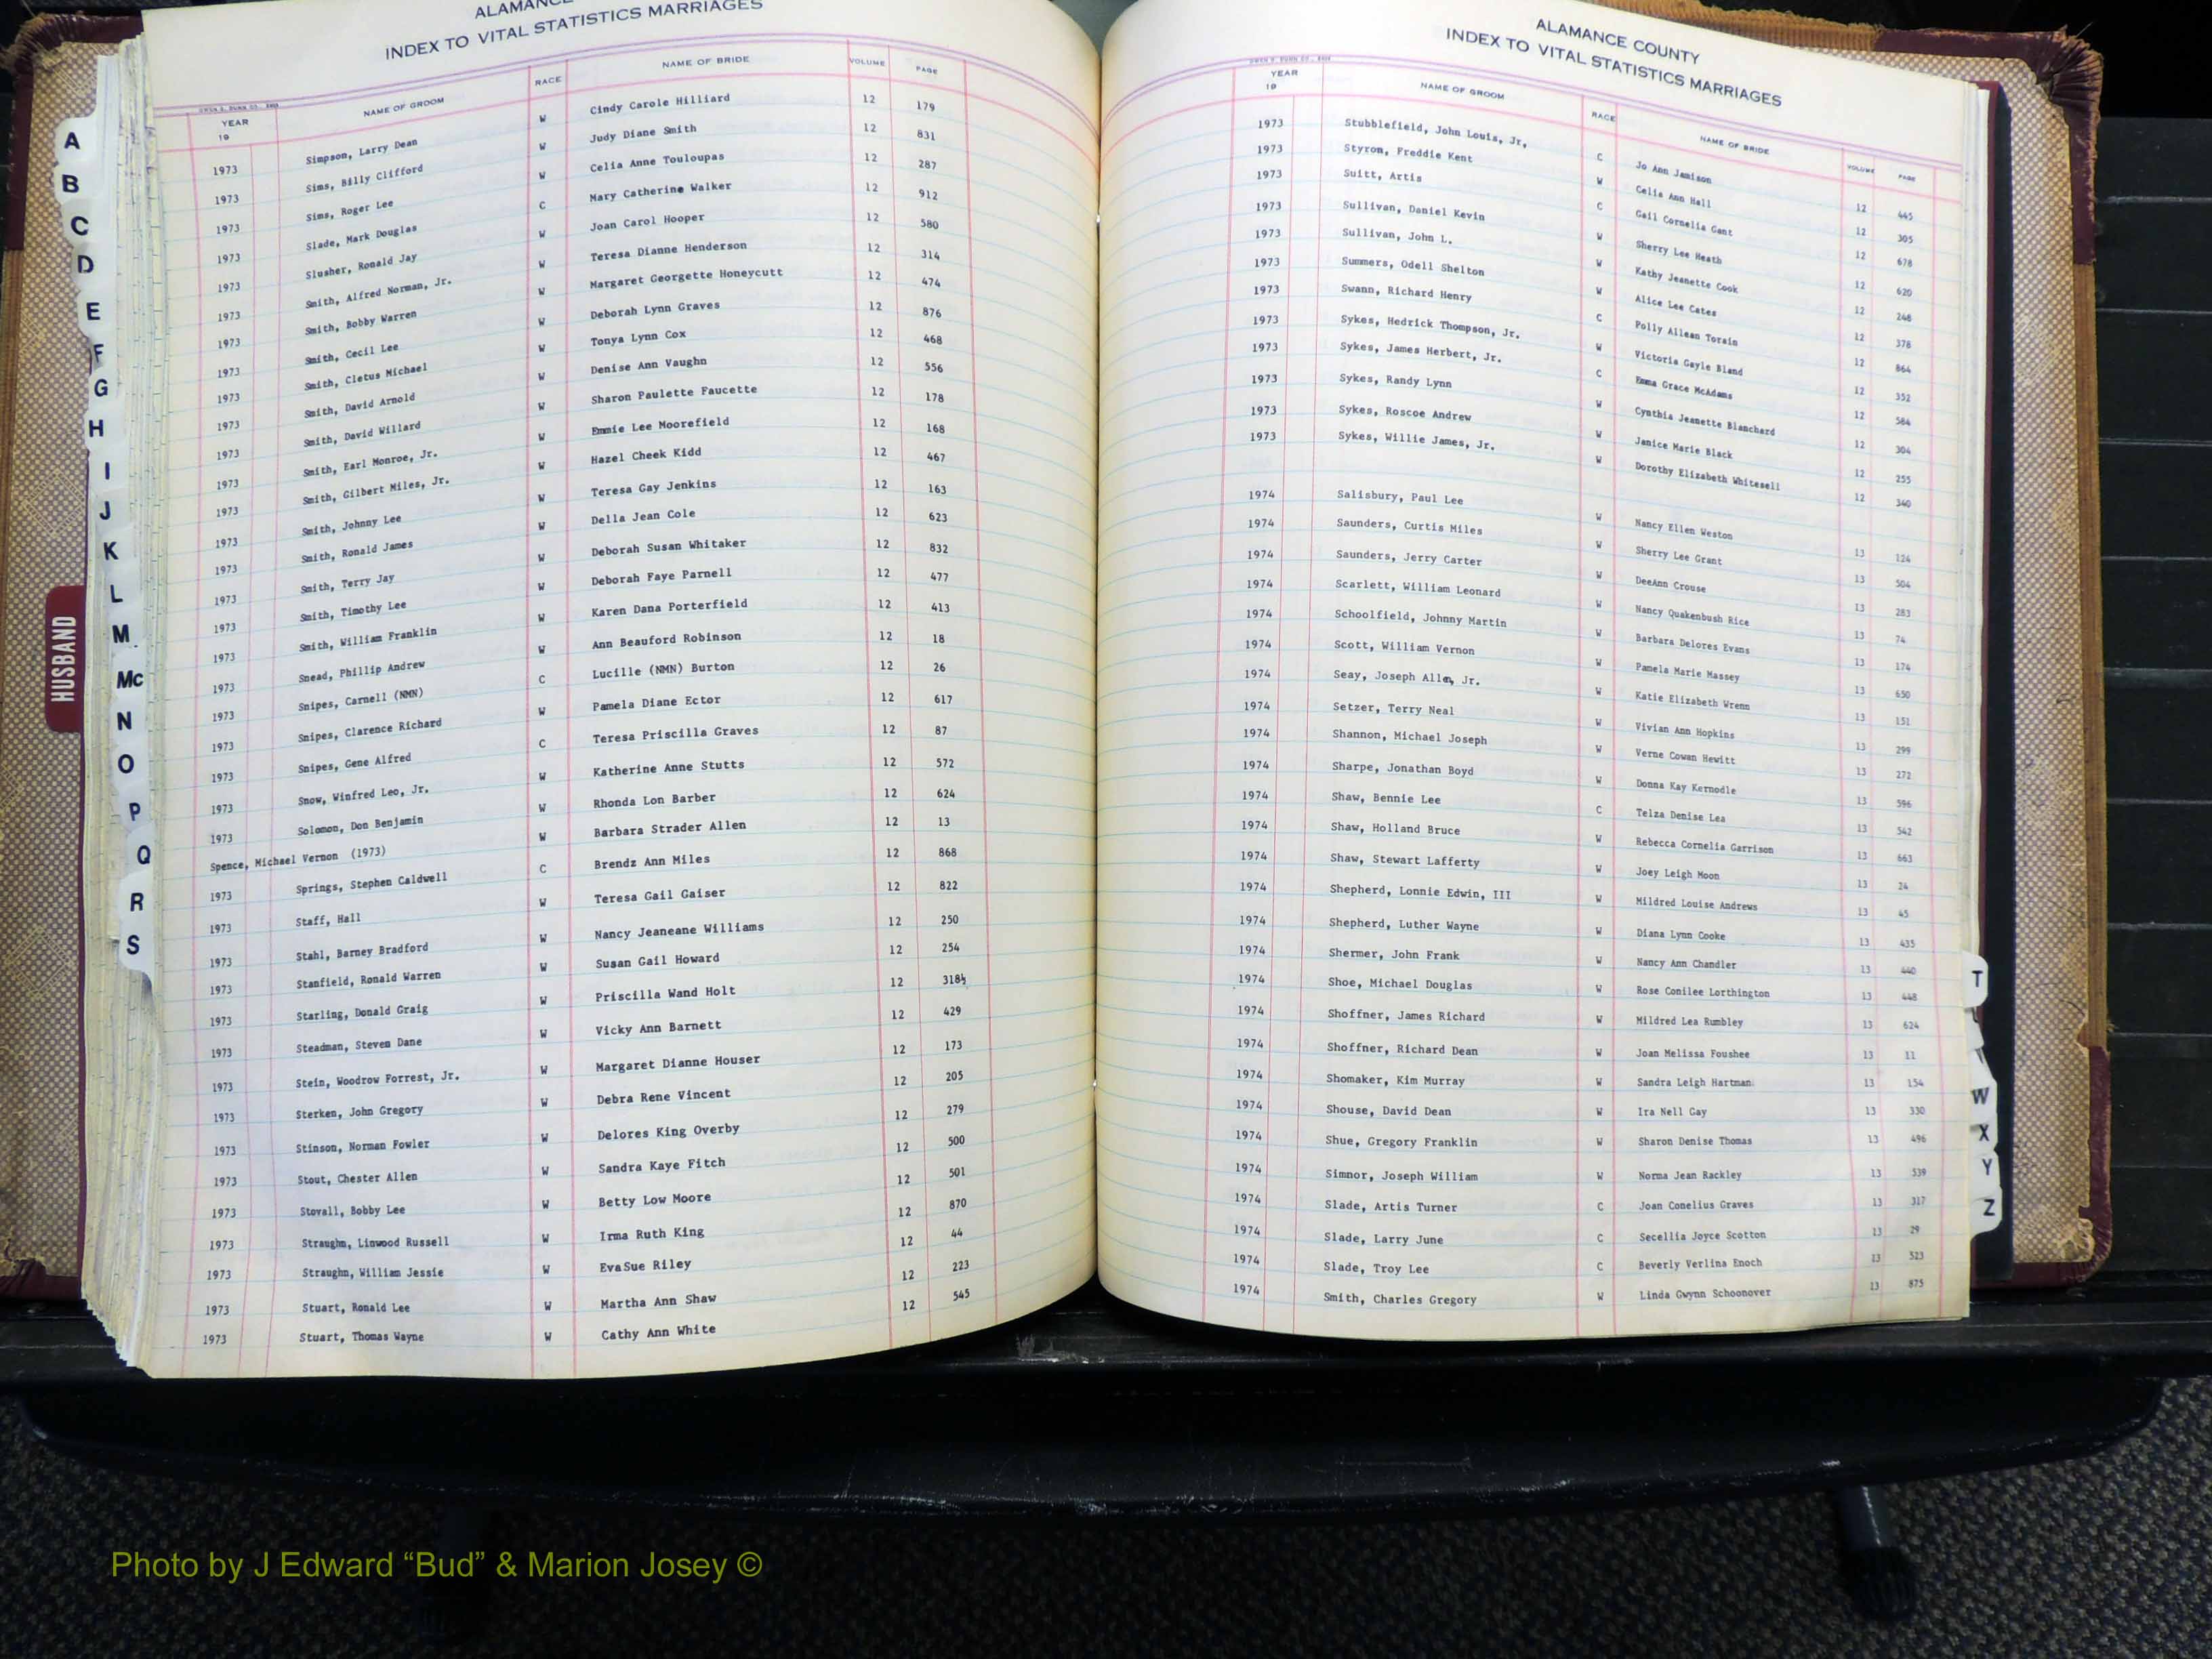 ALAMANCE
INDEX TO VITAL STATISTICS MARRIAGES
YEAR 19 NAME OF GROOM RACE NAME OF BRIDE VOLUME PAGE
1973 Simpson, Larry Dean W Cindy Carole Hilliard 12 179
1973 Sims, Billy Clifford W Judy Diane Smith 12 831
1973 Sims, Roger Lee W Celia Anne Touloupas 12 287
1973 Slade, Mark Douglas C Mary Catherine Walker 12 912
1973 Slusher, Ronald Jay W Joan Carol Hooper 12 580
1973 Smith, Alfred Norman, Jr. W Teresa Dianne Henderson 12 314
1973 Smith, Bobby Warren W Margaret Georgette Honeycutt 12 474
1973 Smith, Cecil Lee W Deborah Lynn Graves 12 876
1973 Smith, Cletus Michael W Tonya Lynn Cox 12 468
1973 Smith, David Arnold W Denise Ann Vaughn 12 556
1973 Smith, David Willard W Sharon Paulette Faucette 12 178
1973 Smith, Earl Monroe, Jr. W Emmie Lee Moorefield 12 168
1973 Smith, Gilbert Miles, Jr. W Hazel Cheek Kidd 12 467
1973 Smith, Johnny Lee W Teresa Gay Jenkins 12 163
1973 Smith, Ronald James W Della Jean Cole 12 623
1973 Smith, Terry Jay W Deborah Susan Whitaker 12 832
1973 Smith, Timothy Lee W Deborah Faye Parnell 12 477
1973 Smith, William Franklin W Karen Dana Porterfield 12 413
1973 Snead, Phillip Andrew W Ann Beauford Robinson 12 18
1973 Snipes, Carnell (NMN) C Lucille (NMN) Burton 12 26
1973 Snipes, Clarence Richard W Pamela Diane Ector 12 617
1973 Snipes, Gene Alfred C Teresa Priscilla Graves 12 87
1973 Snow, Winfred Leo, Jr. W Katherine Anne Stutts 12 572
1973 Solomon, Don Benjamin W Rhonda Lon Barber 12 624
Spence, Michael Vernon (1973) W Barbara Strader Allen 12 13
1973 Springs, Stephen Caldwell C Brendz Ann Miles 12 868
1973 Staff, Hall W Teresa Gail Gaiser 12 822
1973 Stahl, Barney Bradford W Nancy Jeaneane Williams 12 250
1973 Stanfield, Ronald Warren W Susan Gail Howard 12 254
1973 Starling, Donald Graig W Priscilla Wand Holt 12 318½
1973 Steadman, Steven Dane W Vicky Ann Barnett 12 429
1973 Stein, Woodrow Forrest, Jr. W Margaret Dianne Houser 12 173
1973 Sterken, John Gregory W Debra Rene Vincent 12 205
1973 Stinson, Norman Fowler W Delores King Overby 12 279
1973 Stout, Chester Allen W Sandra Kaye Fitch 12 500
1973 Stovall, Bobby Lee W Betty Low Moore 12 501
1973 Straughn, Linwood Russell W Irma Ruth King 12 870
1973 Straughn, William Jessie W EvaSue Riley 12 44
1973 Stuart, Ronald Lee W Martha Ann Shaw 12 223
1973 Stuart, Thomas Wayne W Cathy Ann White 12 545
ALAMANCE COUNTY
INDEX TO VITAL STATISTICS MARRIAGES
YEAR 19 NAME OF GROOM RACE NAME OF BRIDE VOLUME PAGE
1973 Stubblefield, John Louis, Jr, C Jo Ann Jamison 12 445
1973 Styron, Freddie Kent W Celia Ann Hall 12 305
1973 Suitt, Artis C Gail Cornelia Gant 12 678
1973 Sullivan, Daniel Kevin W Sherry Lee Heath 12 620
1973 Sullivan, John L. W Kathy Jeanette Cook 12 248
1973 Summers, Odell Shelton W Alice Lee Cates 12 378
1973 Swann, Richard Henry C Polly Allean Torain 12 864
1973 Sykes, Hedrick Thompson, Jr. W Victoria Gayle Bland 12 352
1973 Sykes, James Herbert, Jr. C Emma Grace McAdams 12 584
1973 Sykes, Randy Lynn W Cynthia Jeanette Blanchard 12 304
1973 Sykes, Roscoe Andrew W Janice Marie Black 12 255
1973 Sykes, Willie James, Jr. W Dorothy Elizabeth Whitesell 12 340
1974 Salisbury, Paul Lee W Nancy Ellen Weston 13 124
1974 Saunders, Curtis Miles W Sherry Lee Grant 13 504
1974 Saunders, Jerry Carter W DeeAnn Crouse 13 283
1974 Scarlett, William Leonard W Nancy Quakenbush Rice 13 74
1974 Schoolfield, Johnny Martin W Barbara Delores Evans 13 174
1974 Scott, William Vernon W Pamela Marie Massey 13 650
1974 Seay, Joseph Allen, Jr. W Katie Elizabeth Wrenn 13 151
1974 Setzer, Terry Neal W Vivian Ann Hopkins 13 299
1974 Shannon, Michael Joseph W Verne Cowan Hewitt 13 272
1974 Sharpe, Jonathan Boyd W Donna Kay Kernodle 13 596
1974 Shaw, Bennie Lee C Telza Denise Lea 13 542
1974 Shaw, Holland Bruce W Rebecca Cornelia Garrison 13 663
1974 Shaw, Stewart Lafferty W Joey Leigh Moon 13 24
1974 Shepherd, Lonnie Edwin, III W Mildred Louise Andrews 13 45
1974 Shepherd, Luther Wayne W Diana Lynn Cooke 13 435
1974 Shermer, John Frank W Nancy Ann Chandler 13 440
1974 Shoe, Michael Douglas W Rose Conilee Lorthington 13 448
1974 Shoffner, James Richard W Mildred Lea Rumbley 13 624
1974 Shoffner, Richard Dean W Joan Melissa Foushee 13 11
1974 Shomaker, Kim Murray W Sandra Leigh Hartman 13 154
1974 Shouse, David Dean W Ira Nell Gay 13 330
1974 Shue, Gregory Franklin W Sharon Denise Thomas 13 496
1974 Simnor, Joseph William W Norma Jean Rackley 13 539
1974 Slade, Artis Turner C Joan Conelius Graves 13 317
1974 Slade, Larry June C Secellia Joyce Scotton 13 29
1974 Slade, Troy Lee C Beverly Verlina Enoch 13 523
1974 Smith, Charles Gregory W Linda Gwynn Schoonover 13 875
A
B
C
D
E
F
G
H
I
J
K
L
M
Mc
N
O
P
Q
R
S
T
W
X
Y
Z
HUSBAND
Photo by J Edward “Bud” & Marion Josey ©